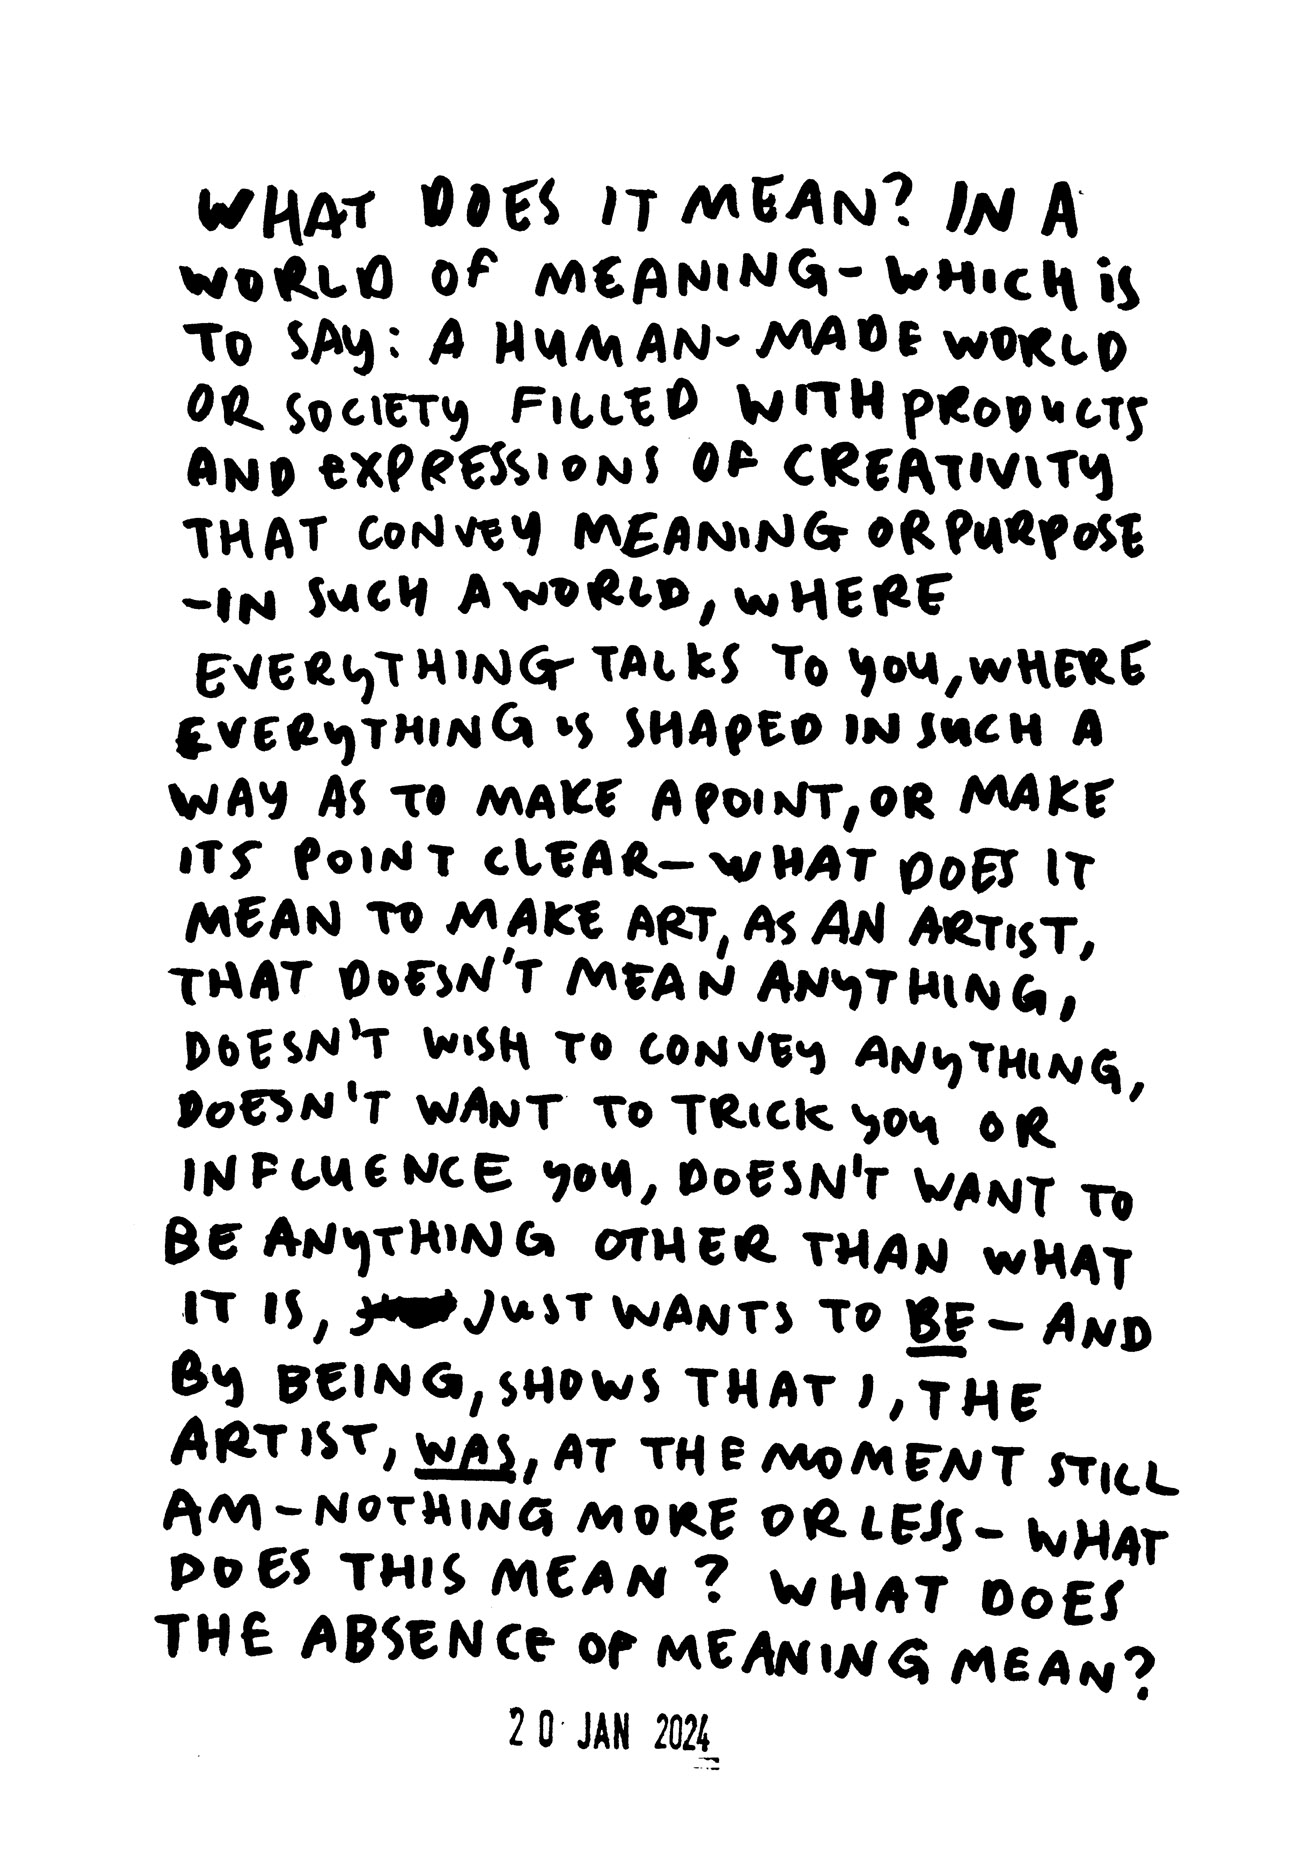 WHAT DOES IT MEAN? IN A
WORLD OF MEANING - WHICH iS
TO SAY: A HUMAN-MADE WORLD
OR SOCIETY FILLED WITH PRODUCTS
AND EXPRESSIONS OF CREATIVITY
THAT CONVEY MEANING OR PURPOSE
- IN SUCH A WORLD, WHERE
EVERYTHING TALKS TO YOU, WHERE
EVERYTHING IS SHAPED IN SUCH A
WAY AS TO MAKE A POINT, OR MAKE
ITS POINT CLEAR - WHAT DOES IT
MEAN TO MAKE ART, AS AN ARTIST,
THAT DOESN'T MEAN ANYTHING,
DOESN'T WISH TO CONVEY ANYTHING,
DOESN'T WANT TO TRICK YOU OR
INFLUENCE YOU, DOESN'T WANT TO
BE ANYTHING OTHER THAN WHAT
IT IS, JUST WANTS TO BE - AND
BY BEING, SHOWS THAT I, THE
ARTIST, WAS, AT THE MOMENT STILL
AM - NOTHING MORE OR LESS - WHAT
DOES THIS MEAN? WHAT DOES
THE ABSENCE OF MEANING MEAN?
20 JAN 2024